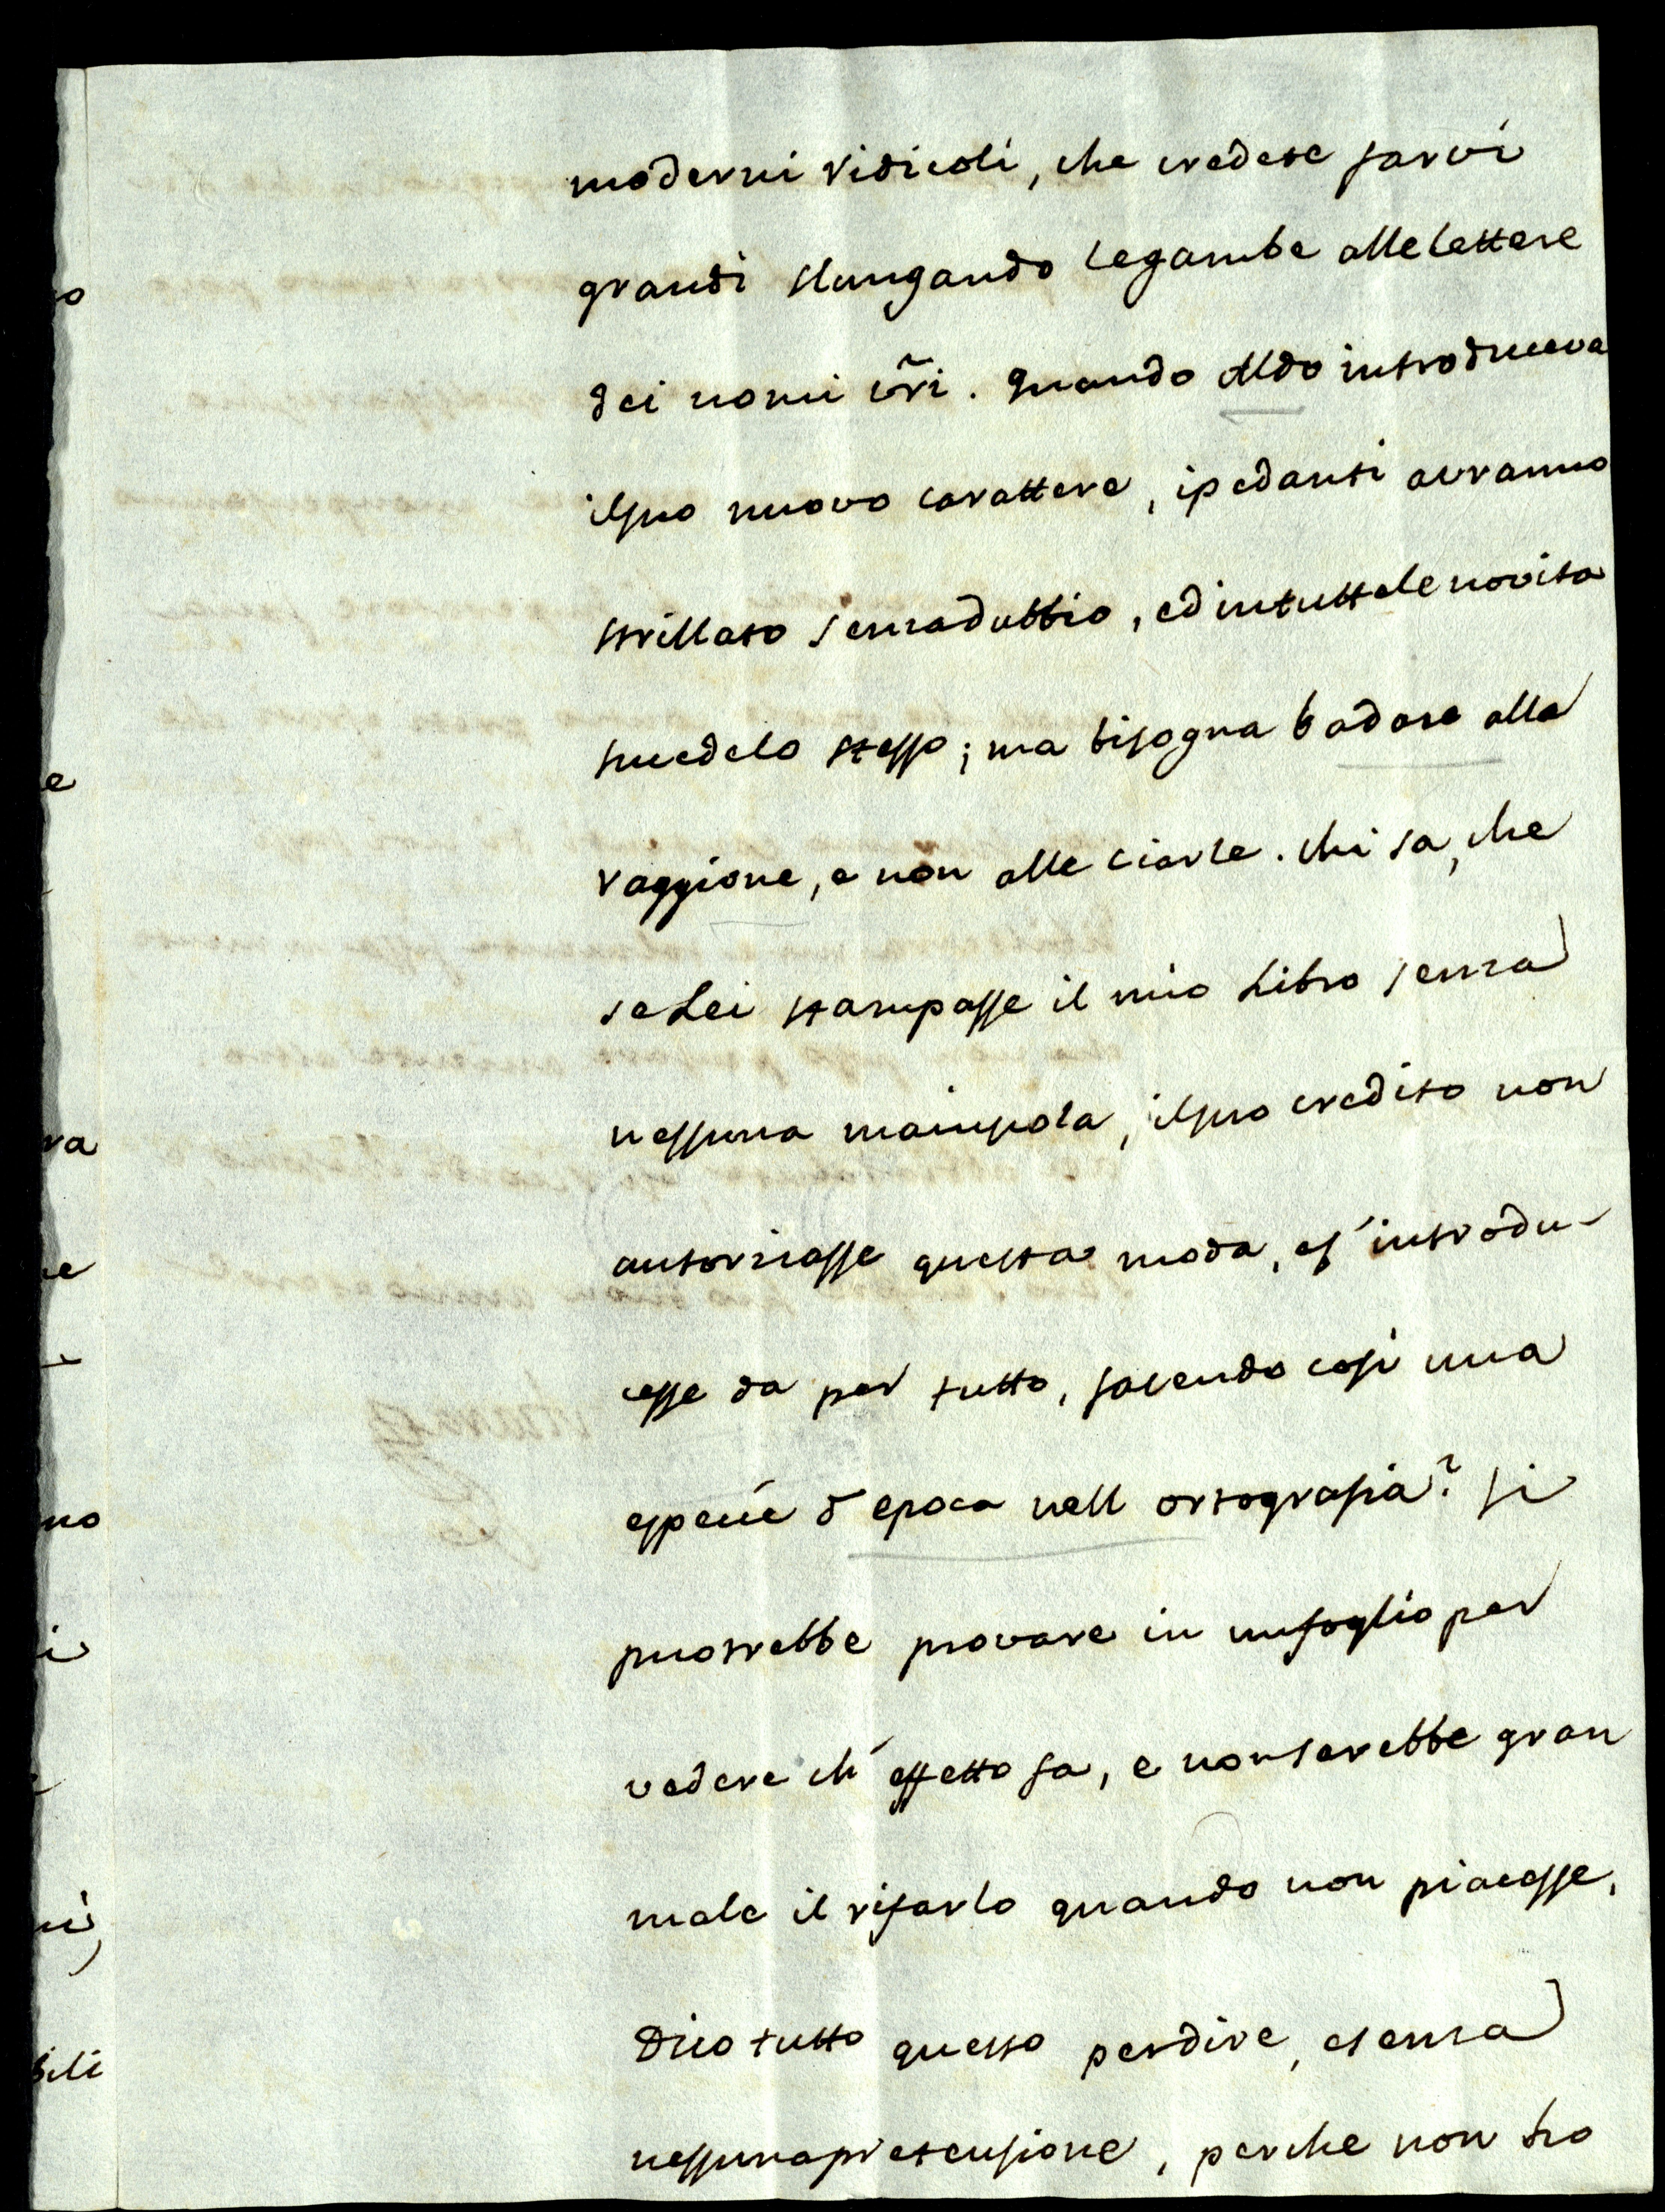 moderni ridicoli, che credete farvi
grandi slungando legambe alle lettere
dei nomi vr̃i. Quando Aldo introduceva
ilsuo nuovo carattere, ipedanti avranno
strillato senzadubbio, ed intuttele novita
succedelo stesso; ma bisogna badare alla
raggione, e non alle ciarle. chi sa, che
se Lei stampasse il mio Libro senza
nessuna majuscola, ilsuo credito non
autorizasse questa moda, es' introdu-
cesse da per tutto, facendo cosi una
specie d epoca nell ortografia? Si
puotrebbe provare in unfoglio per
vedere ch' effetto fa, e nonsarebbe gran
male il rifarlo quando non piacesse.
Dico tutto questo perdire, esenza
nessunapretensione, perche non ho